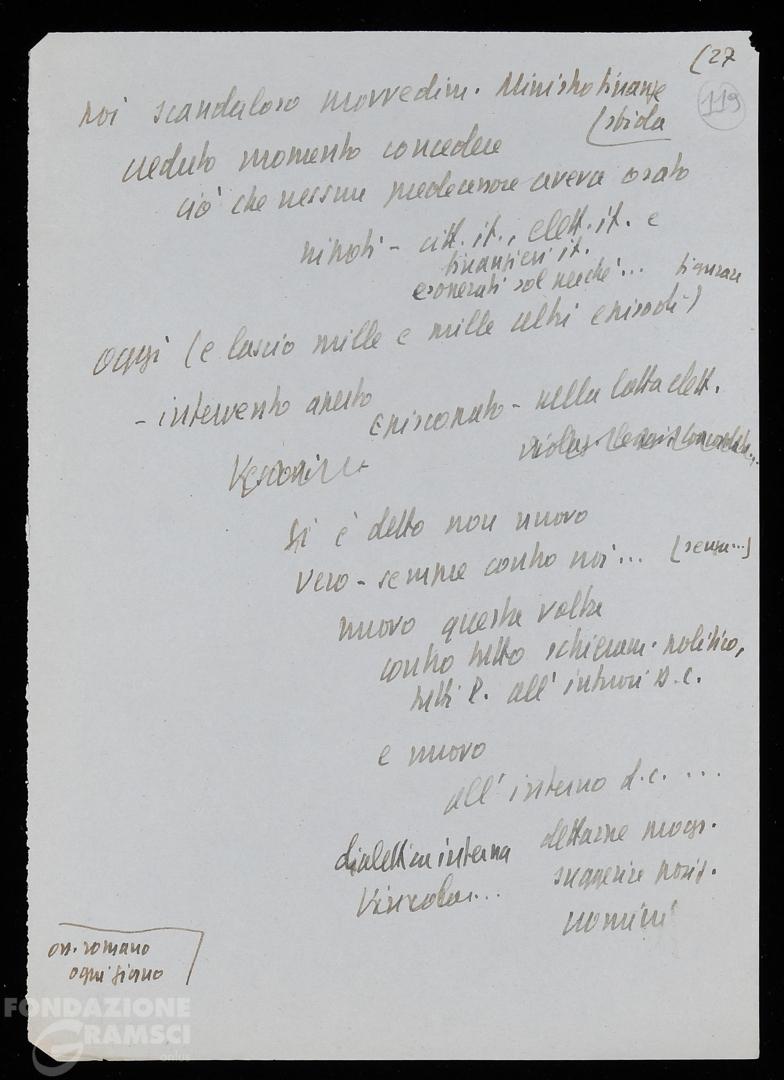 (27
119
poi scandaloso provvedim. Ministro finanze
(sfida
creduto momento concedere
ciò che nessun predecessore aveva osato
nipoti - citt. it., elett. it. e
finanzieri it.
esonerati sol perché... figurare
Oggi (e lascio mille e mille altri episodi)
- intervento aperto
Episcopato - nella lotta elett.
Vescovi
Si è detto non nuovo
vero - sempre contro noi... (senza...)
nuovo questa volta
contro tutto schieram. politico,
tutti P. all'infuori D.C.
e nuovo
all'interno d.c. ...
dialettica interna dettarne progr.
Vincolar... suggerire posiz.
uomini
oss. romano
ogni giorno
FONDAZIONE
GRAMSCI
onlus